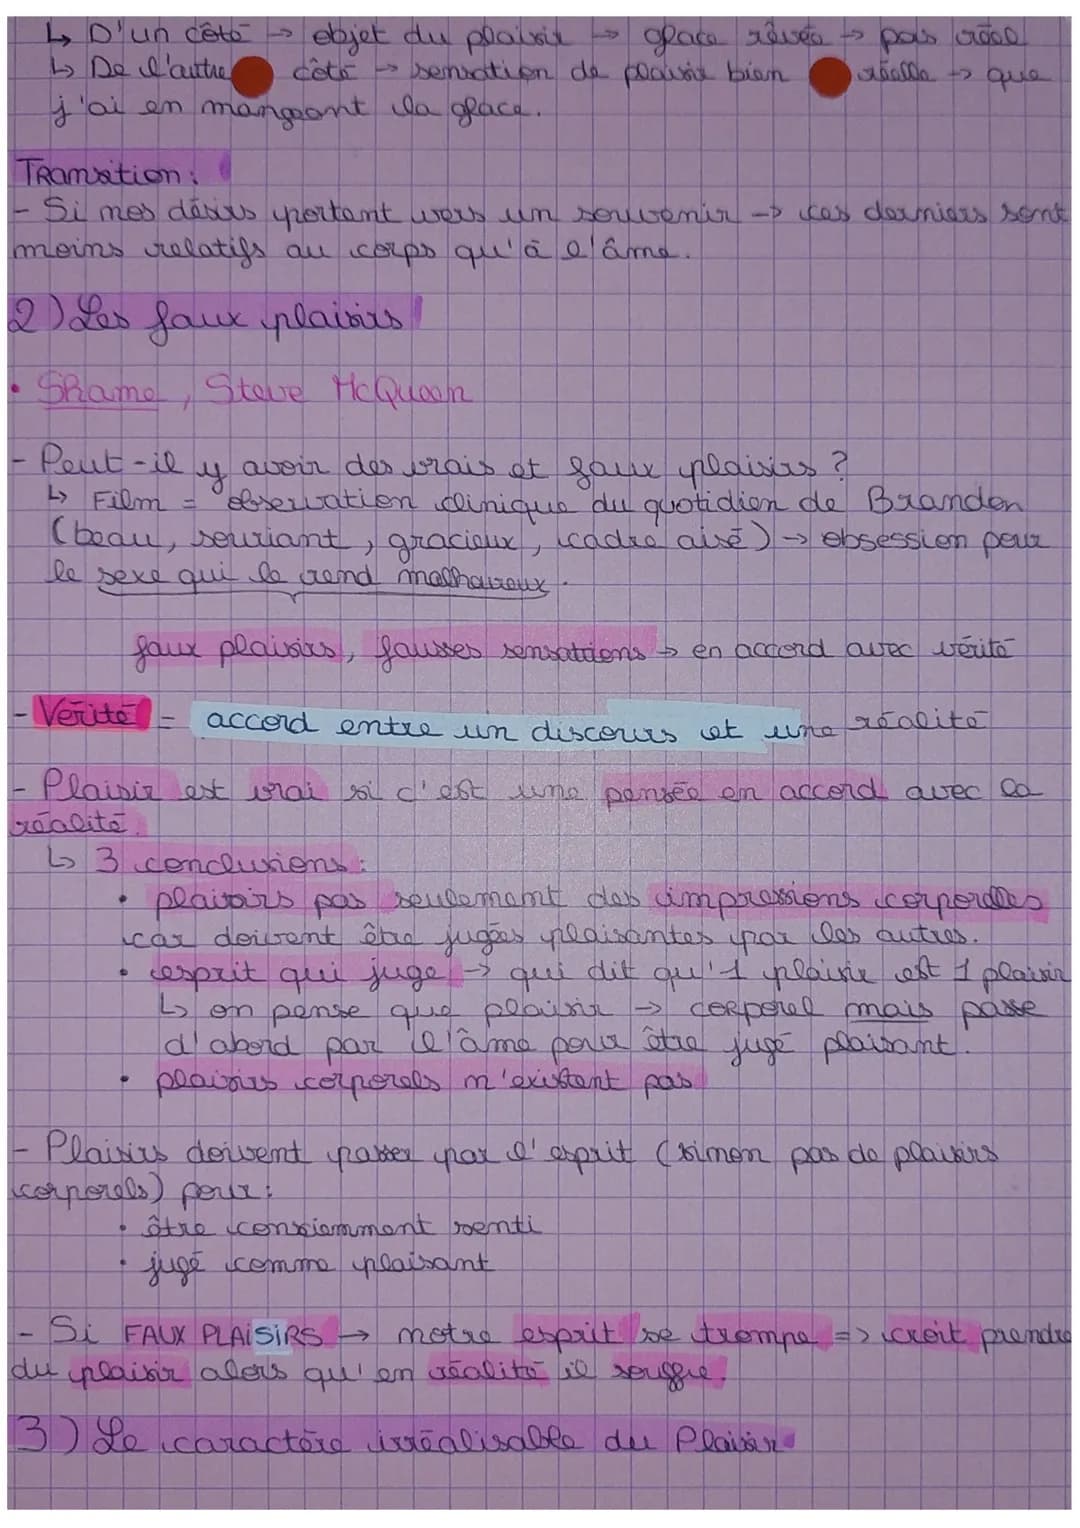 ↳ D'un côté → objet du plaisir → glace rêvée → pas réel
↳ De l'autre côté → sensation de plaisir bien réelle → que
j'ai en mangeant la glace.
Transition :
- Si mes désirs portent vers un souvenir → ces derniers sont
moins relatifs au corps qu'à l'âme.
2) Les faux plaisirs
• Shame, Steve McQueen
- Peut-il y avoir des vrais et faux plaisirs ?
↳ Film = observation clinique du quotidien de Brandon
(beau, souriant, gracieux, cadre aisé) → obsession pour
le sexe qui le rend malheureux.
faux plaisirs, fausses sensations → en accord avec vérité
- Vérité = accord entre un discours et une réalité
- Plaisir est vrai si c'est une pensée en accord avec la
réalité.
↳ 3 conclusions :
• plaisirs pas seulement des impressions corporelles
car doivent être jugées plaisantes par les autres.
• esprit qui juge → qui dit qu'1 plaisir est 1 plaisir
↳ on pense que plaisir → corporel mais passe
d'abord par l'âme pour être jugé plaisant.
• plaisirs corporels n'existent pas
- Plaisirs doivent passer par l'esprit (sinon pas de plaisirs
corporels) pour :
• être consciemment senti
• jugé comme plaisant
- Si FAUX PLAISIRS → notre esprit se trompe => croit prendre
du plaisir alors qu'en réalité il souffre.
3) Le caractère irréalisable du Plaisir